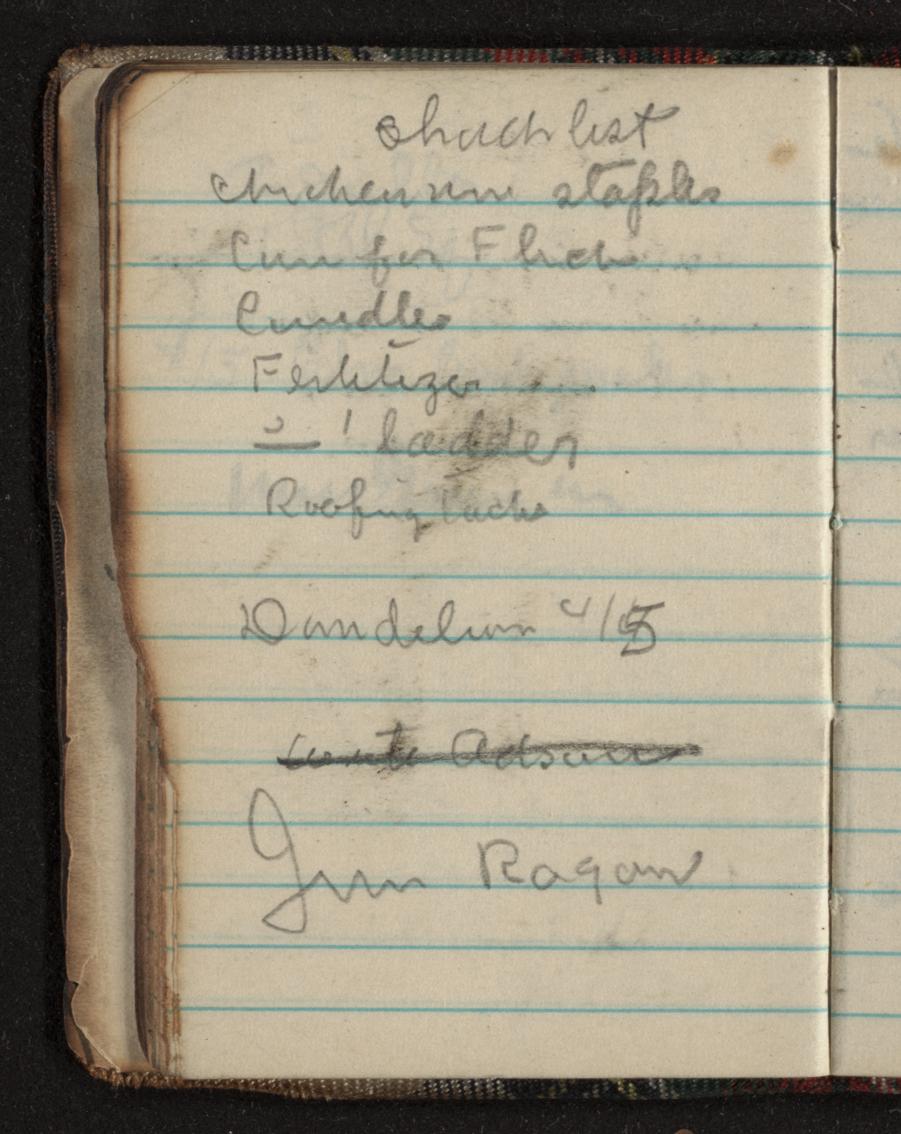 shack list
chickenwire staples
Gun for Flick
Candles
Fertilizer
' ladder
Roofing tacks
Dandelion 4/5
write Adsum
Jim Ragan